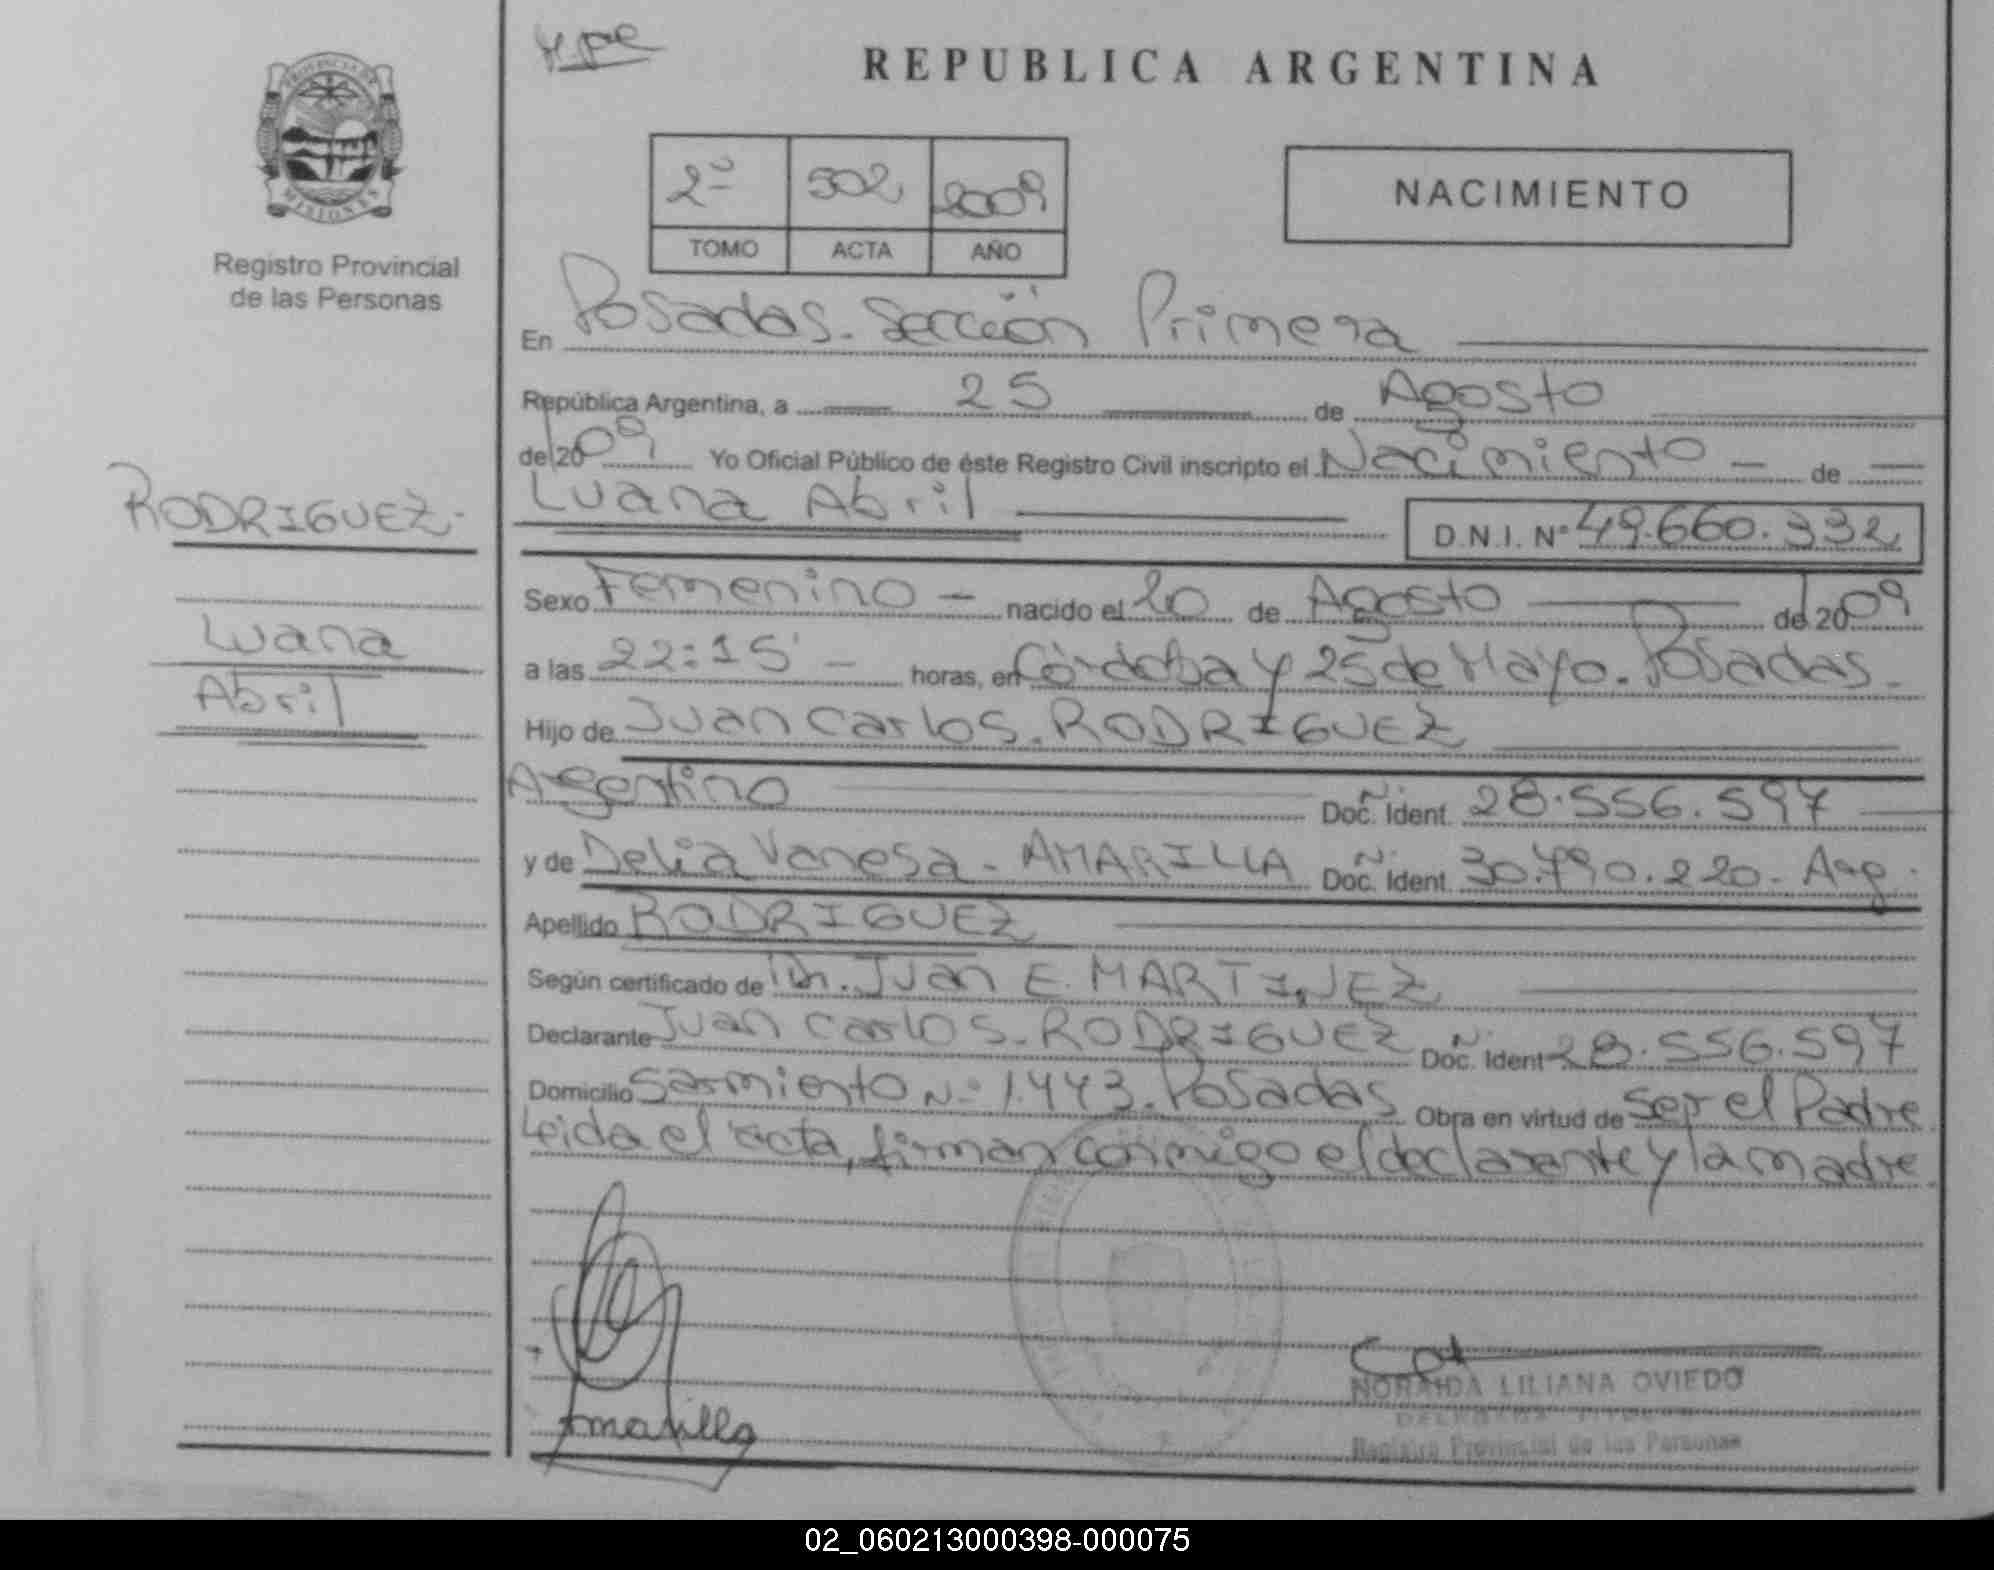 REPUBLICA ARGENTINA
PROVINCIA DE
MISIONES
Registro Provincial
de las Personas
2º 502 2009
TOMO ACTA AÑO
NACIMIENTO
En Posadas. Sección Primera
República Argentina, a 25 de Agosto
del 2009 Yo Oficial Público de éste Registro Civil inscripto el Nacimiento - de
Luana Abril
D.N.I. Nº 49.660.332
RODRIGUEZ-
Luana
Abril
Sexo Femenino - nacido el 20 de Agosto del 2009
a las 22:15' - horas, en Córdoba y 25 de Mayo. Posadas-
Hijo de Juan Carlos. RODRIGUEZ
Argentino Doc. Ident. 28.556.597
y de Delia Vanesa - AMARILLA Doc. Ident. 30.790.220- Arg.
Apellido RODRIGUEZ
Según certificado de Dr. Juan E. MARTINEZ
Declarante Juan Carlos. RODRIGUEZ Doc. Ident 28.556.597
Domicilio Sarmiento Nº 1.443. Posadas Obra en virtud de ser el Padre
Leida el acta, firman conmigo el declarante y la madre
Amarilla
NORAIDA LILIANA OVIEDO
DELEGADA TITULAR
Registro Provincial de las Personas
02_060213000398-000075